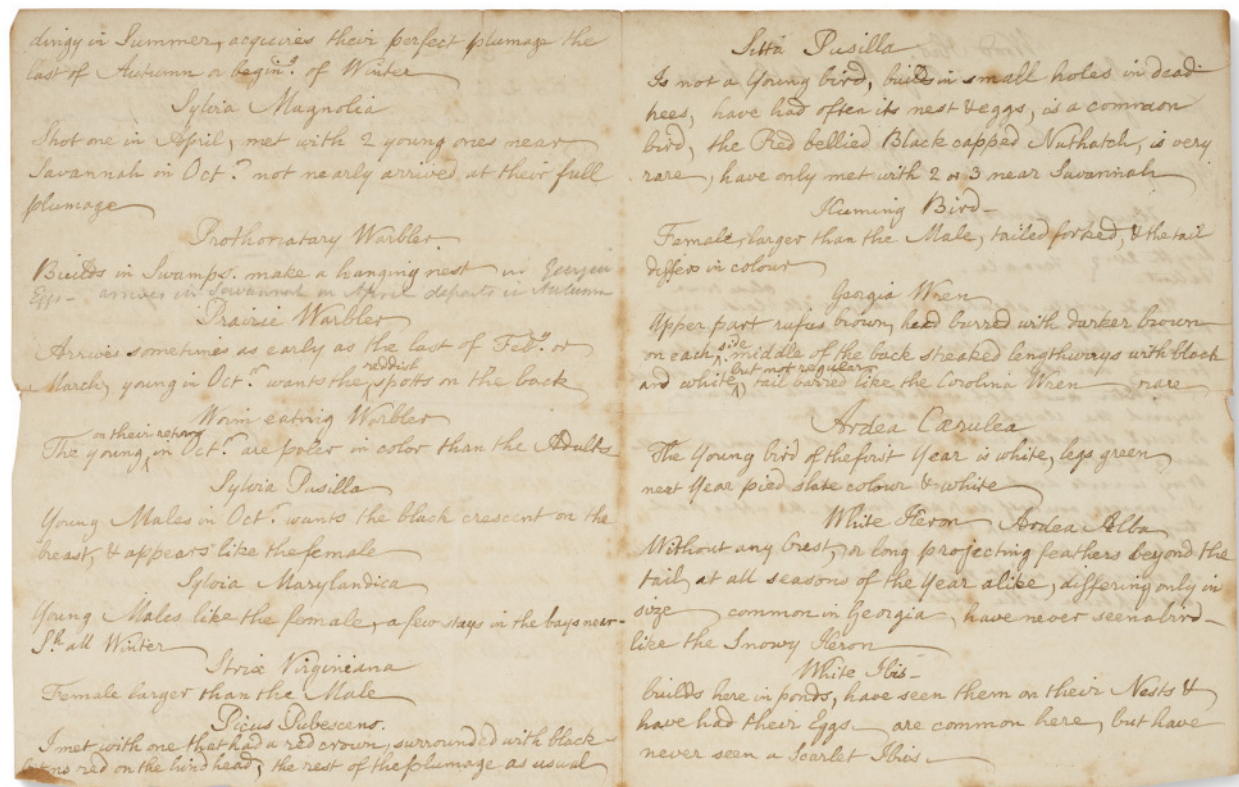 dingy in Summer, acquires their perfect plumage the
last of Autumn or begin.g of Winter
Sylvia Magnolia
Shot one in April, met with 2 young ones near
Savannah in Oct.r not nearly arrived at their full
plumage
Prothonatary Warbler
Builds in Swamps. make a hanging nest
Eggs - arrives in Savannah in April departs in Autumn
Prairie Warbler
Arrives sometimes as early as the last of Feb.y or
March, young in Oct.r wants the reddist spotts on the back
Worm eating Warbler
The young on their return in Oct.r are paler in color than the Adults
Sylvia Pusilla
Young Males in Oct.r wants the black crescent on the
breast, & appears like the female
Sylvia Marylandica
Young Males like the female, a few stays in the bays near
S.h all Winter
Strix Virginiana
Female larger than the Male
Picus Pubescens.
I met with one that had a red crown, surrounded with black
but no red on the hind head, the rest of the plumage as usual
Sitta Pusilla
Is not a Young bird, builds in small holes in dead
trees, have had often its nest & eggs, is a common
bird, the Red bellied Black capped Nuthatch, is very
rare, have only met with 2 or 3 near Savannah
Huming Bird
Female, larger than the Male, tailed forked, & the tail
differs in colour
Georgia Wren
Upper part rufus brown, head barred with darker brown
on each side. middle of the back streaked lengthways with black
and white, but not regular tail barred like the Carolina Wren rare
Ardea Cærulea
The Young bird of the first Year is white, legs green,
next Year pied slate colour & white
White Heron Ardea Alba
Without any Crest, or long projecting feathers beyond the
tail, at all seasons of the Year alike, differing only in
size common in Georgia, have never seen a bird
like the Snowy Heron
White Ibis
builds here in ponds, have seen them on their Nests &
have had their Eggs. are common here, but have
never seen a Scarlet Ibis.